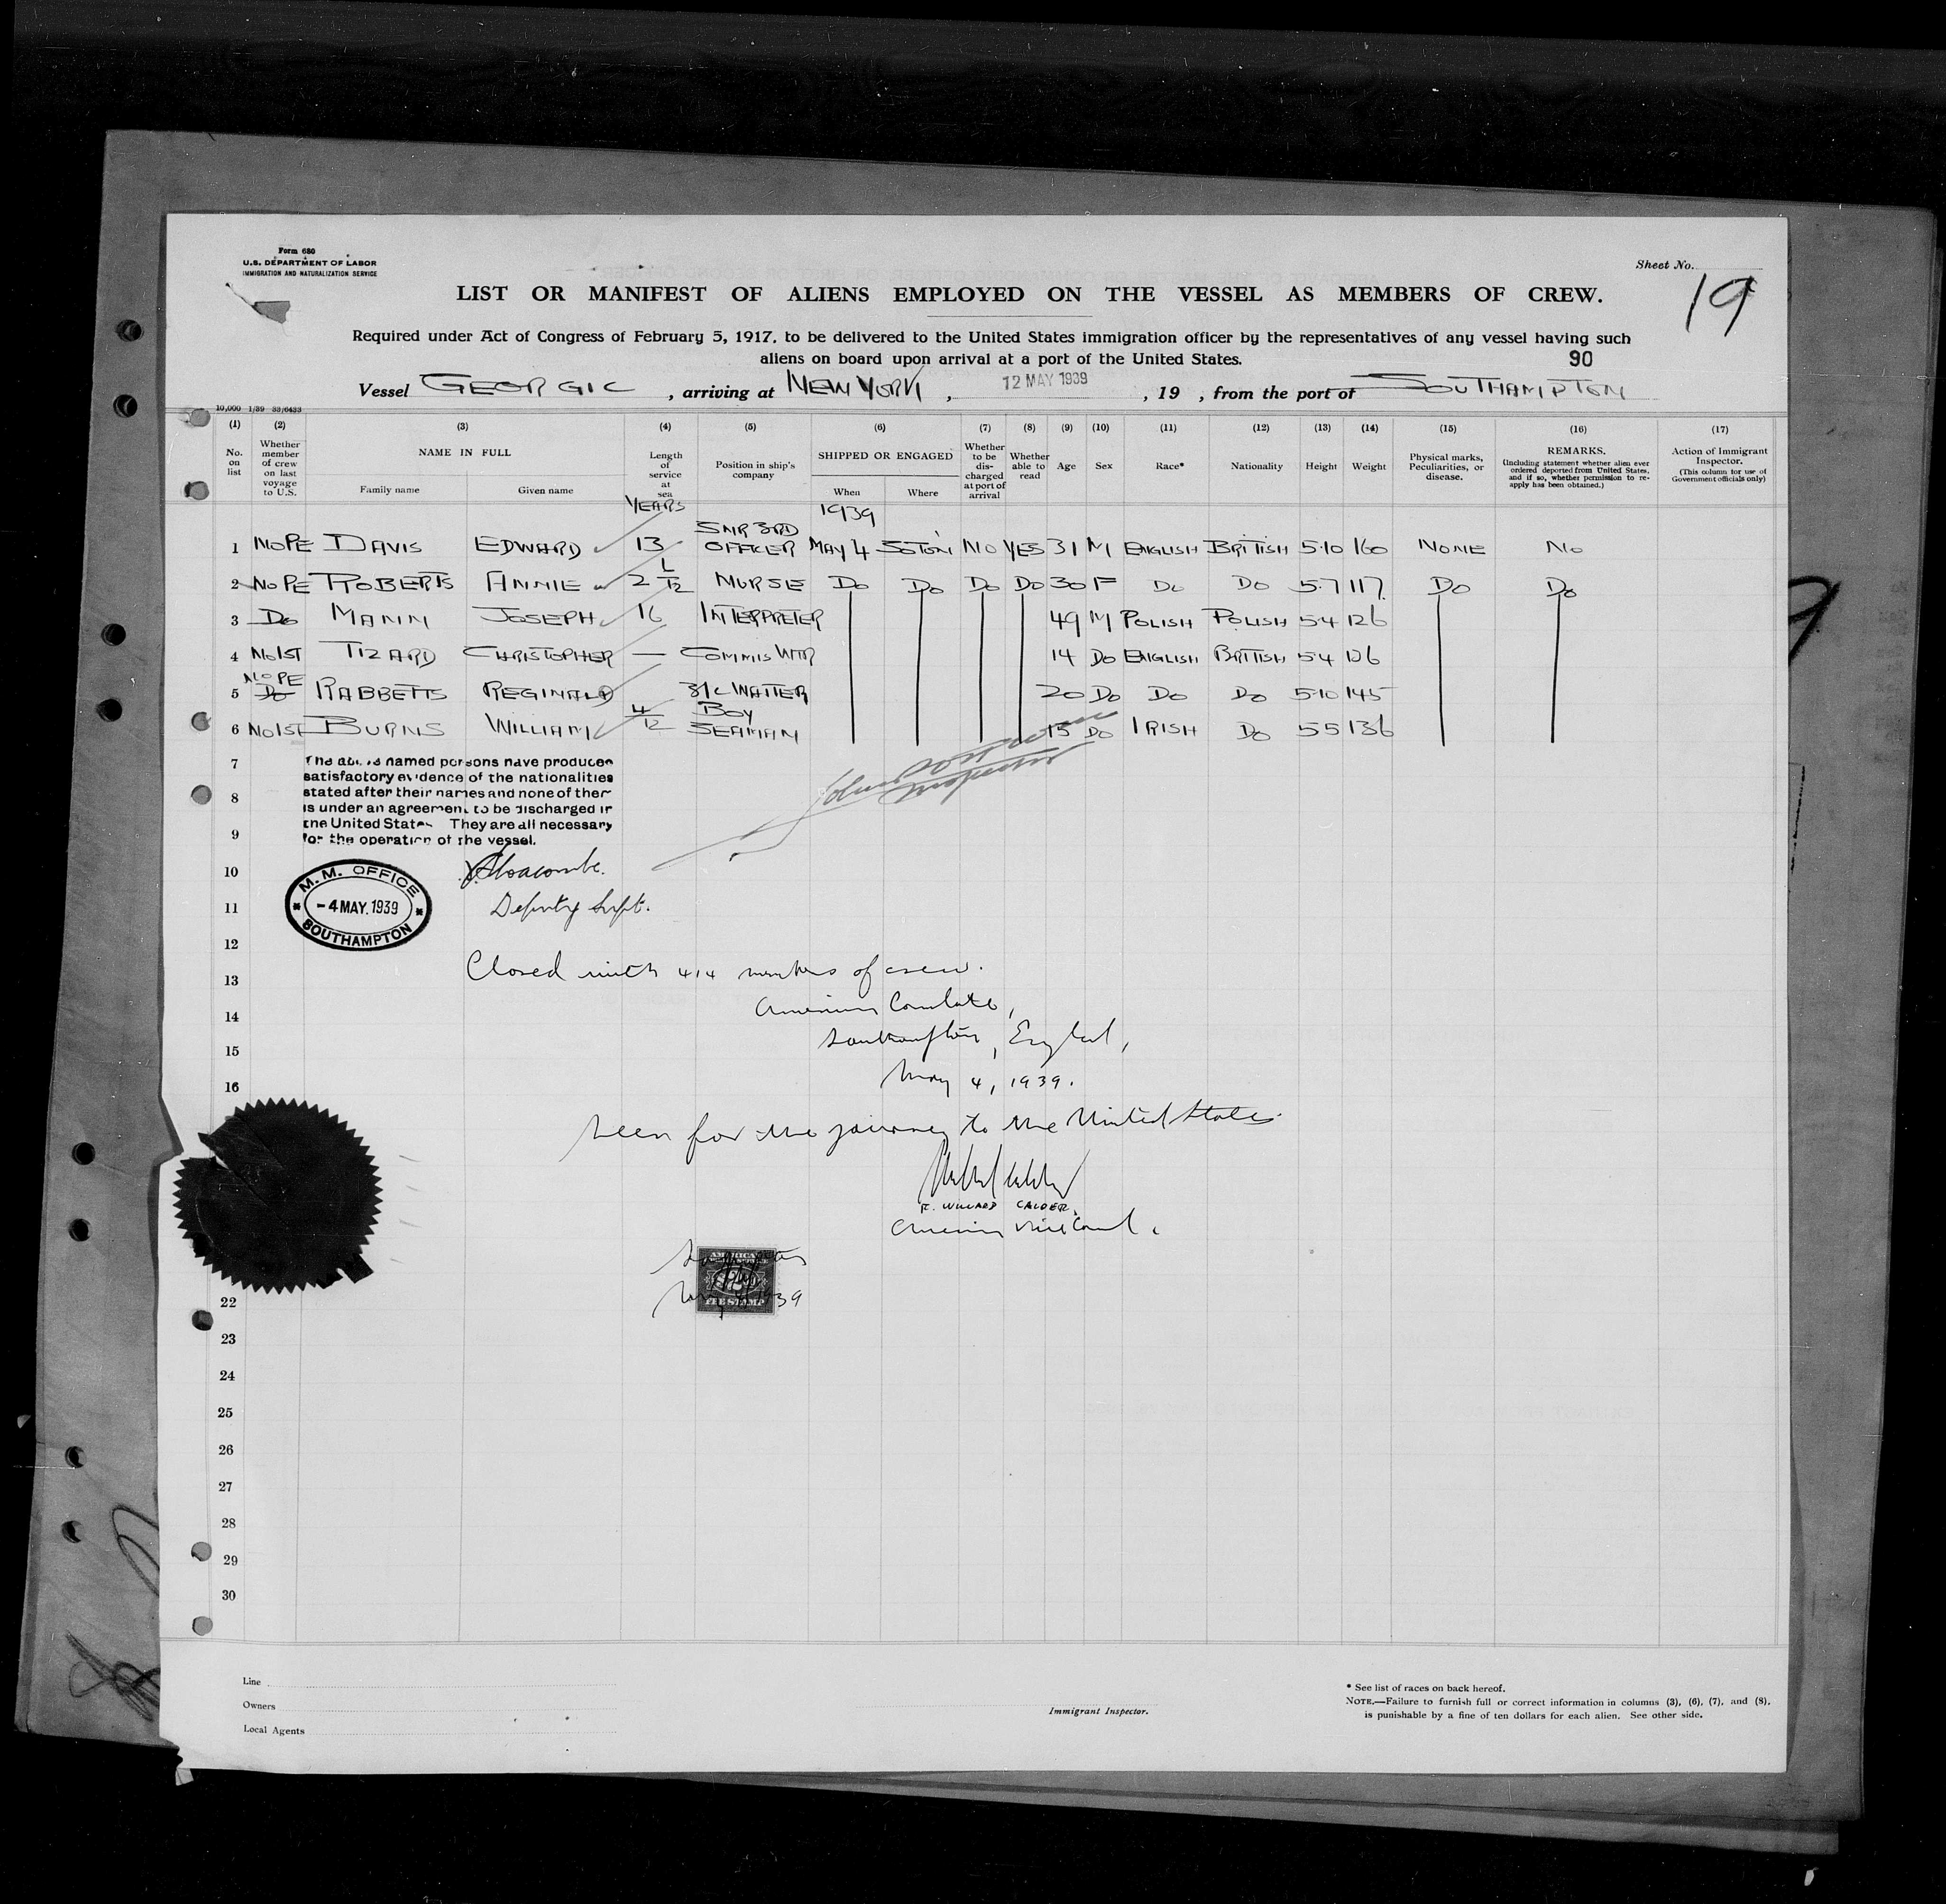 Form 680
U.S. DEPARTMENT OF LABOR
IMMIGRATION AND NATURALIZATION SERVICE
Sheet No.
19
LIST OR MANIFEST OF ALIENS EMPLOYED ON THE VESSEL AS MEMBERS OF CREW.
Required under Act of Congress of February 5, 1917, to be delivered to the United States immigration officer by the representatives of any vessel having such
aliens on board upon arrival at a port of the United States.
90
Vessel GEORGIC, arriving at NEW YORK, 12 MAY 1939, 19 , from the port of SOUTHAMPTON
10,000 1/39 33/6433
(1) (2) (3) (4) (5) (6) (7) (8) (9) (10) (11) (12) (13) (14) (15) (16) (17)
No. on list
Whether member of crew on last voyage to U.S.
NAME IN FULL
Family name Given name
Length of service at sea
Position in ship's company
SHIPPED OR ENGAGED
When Where
Whether to be discharged at port of arrival
Whether able to read
Age
Sex
Race*
Nationality
Height
Weight
Physical marks, Peculiarities, or disease.
REMARKS.
(Including statement whether alien ever ordered deported from United States, and if so, whether permission to re-apply has been obtained.)
Action of Immigrant Inspector.
(This column for use of Government officials only)
YEARS 1939
1 NOPE DAVIS EDWARD 13 SNR 3RD OFFICER MAY 4 SOTON NO YES 31 M ENGLISH BRITISH 5·10 160 NONE NO
2 NOPE ROBERTS ANNIE 2 1/12 NURSE DO DO DO DO 30 F DO DO 5·7 117 DO DO
3 DO MANN JOSEPH 16 INTERPRETER 49 M POLISH POLISH 5·4 126
4 NO1ST TIZARD CHRISTOPHER — COMMIS WTR 14 DO ENGLISH BRITISH 5·4 126
5 NOPE RABBETTS REGINALD 3/C WAITER 20 DO DO DO 5·10 145
6 NO1ST BURNS WILLIAM 4/12 BOY SEAMAN 15 DO IRISH DO 5 5 136
7
8
9
The above named persons have produced
satisfactory evidence of the nationalities
stated after their names and none of them
is under an agreement to be discharged in
the United States They are all necessary
for the operation of the vessel.
Inspector
10
11 Deputy Supt.
M.M. OFFICE
-4 MAY. 1939
SOUTHAMPTON
12
13 Closed with 414 members of crew.
14 American Consulate,
15 Southampton, England,
16 May 4, 1939.
Seen for the journey to the United States.
F. WILLARD CALDER.
American Vice Consul.
Southampton
May 4, 1939
AMERICAN
FEE STAMP
22
23
24
25
26
27
28
29
30
Line
Owners
Local Agents
Immigrant Inspector.
* See list of races on back hereof.
NOTE.—Failure to furnish full or correct information in columns (3), (6), (7), and (8),
is punishable by a fine of ten dollars for each alien. See other side.